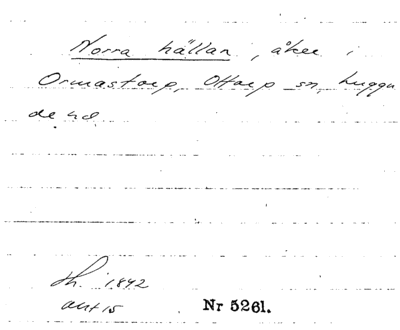 Norra hällan, åker i
Ormastorp, Ottarp sn, Luggu
de hd.
sh. 1842
akt 15
Nr 5261.